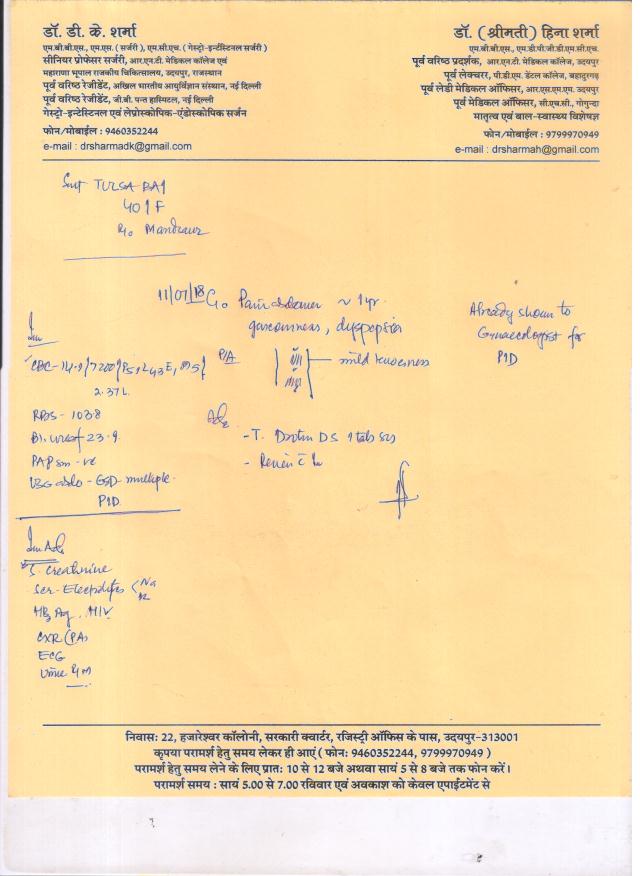 डॉ. डी. के. शर्मा
एम.बी.बी.एस., एम.एस. ( सर्जरी ), एम.सी.एच. ( गेस्ट्रो-इन्टेस्टिनल सर्जरी )
सीनियर प्रोफेसर सर्जरी, आर.एन.टी. मेडिकल कॉलेज एवं
महाराणा भूपाल राजकीय चिकित्सालय, उदयपुर, राजस्थान
पूर्व वरिष्ठ रेजीडेंट, अखिल भारतीय आयुर्विज्ञान संस्थान, नई दिल्ली
पूर्व वरिष्ठ रेजीडेंट, जी.बी. पन्त हास्पिटल, नई दिल्ली
गेस्ट्रो-इन्टेस्टिनल एवं लेप्रोस्कोपिक-एंडोस्कोपिक सर्जन
फोन/मोबाईल : 9460352244
e-mail : drsharmadk@gmail.com
डॉ. (श्रीमती) हिना शर्मा
एम.बी.बी.एस., एम.डी.पी.जी.डी.एम.सी.एच.
पूर्व वरिष्ठ प्रदर्शक, आर.एन.टी. मेडिकल कॉलेज, उदयपुर
पूर्व लेक्चरर, पी.डी.एम. डेंटल कॉलेज, बहादुरगढ़
पूर्व लेडी मेडिकल ऑफिसर, आर.एस.एम.एम. उदयपुर
पूर्व मेडिकल ऑफिसर, सी.एच.सी., गोगुन्दा
मातृत्व एवं बाल-स्वास्थ्य विशेषज्ञ
फोन/मोबाईल : 9799970949
e-mail : drsharmah@gmail.com
Smt TULSA BAI
40/F
R/o Mandsaur
11/07/18 C/o Pain abdomen ~ 1 yr.
gaseousness, dyspepsia
Already shown to
Gynaecologist for
PID
Inv
CBC - 14.1/7200/P51L43E1M5
2.37L
P/A
mild tenderness
RBS - 103.8
Bl. urea 23.9
PAP sm -ve
USG abdo - GSD - multiple
PID
Adv
- T. Drotin DS 1 tab sos
- Review c Inv
Inv Adv
S. creatinine
Ser. Electrolytes < Na
K
HBs Ag, HIV
CXR (PA)
ECG
Urine R/M
निवासः 22, हजारेश्वर कॉलोनी, सरकारी क्वार्टर, रजिस्ट्री ऑफिस के पास, उदयपुर-313001
कृपया परामर्श हेतु समय लेकर ही आएं ( फोनः 9460352244, 9799970949 )
परामर्श हेतु समय लेने के लिए प्रातः 10 से 12 बजे अथवा सायं 5 से 8 बजे तक फोन करें।
परामर्श समय : सायं 5.00 से 7.00 रविवार एवं अवकाश को केवल एपाईंटमेंट से